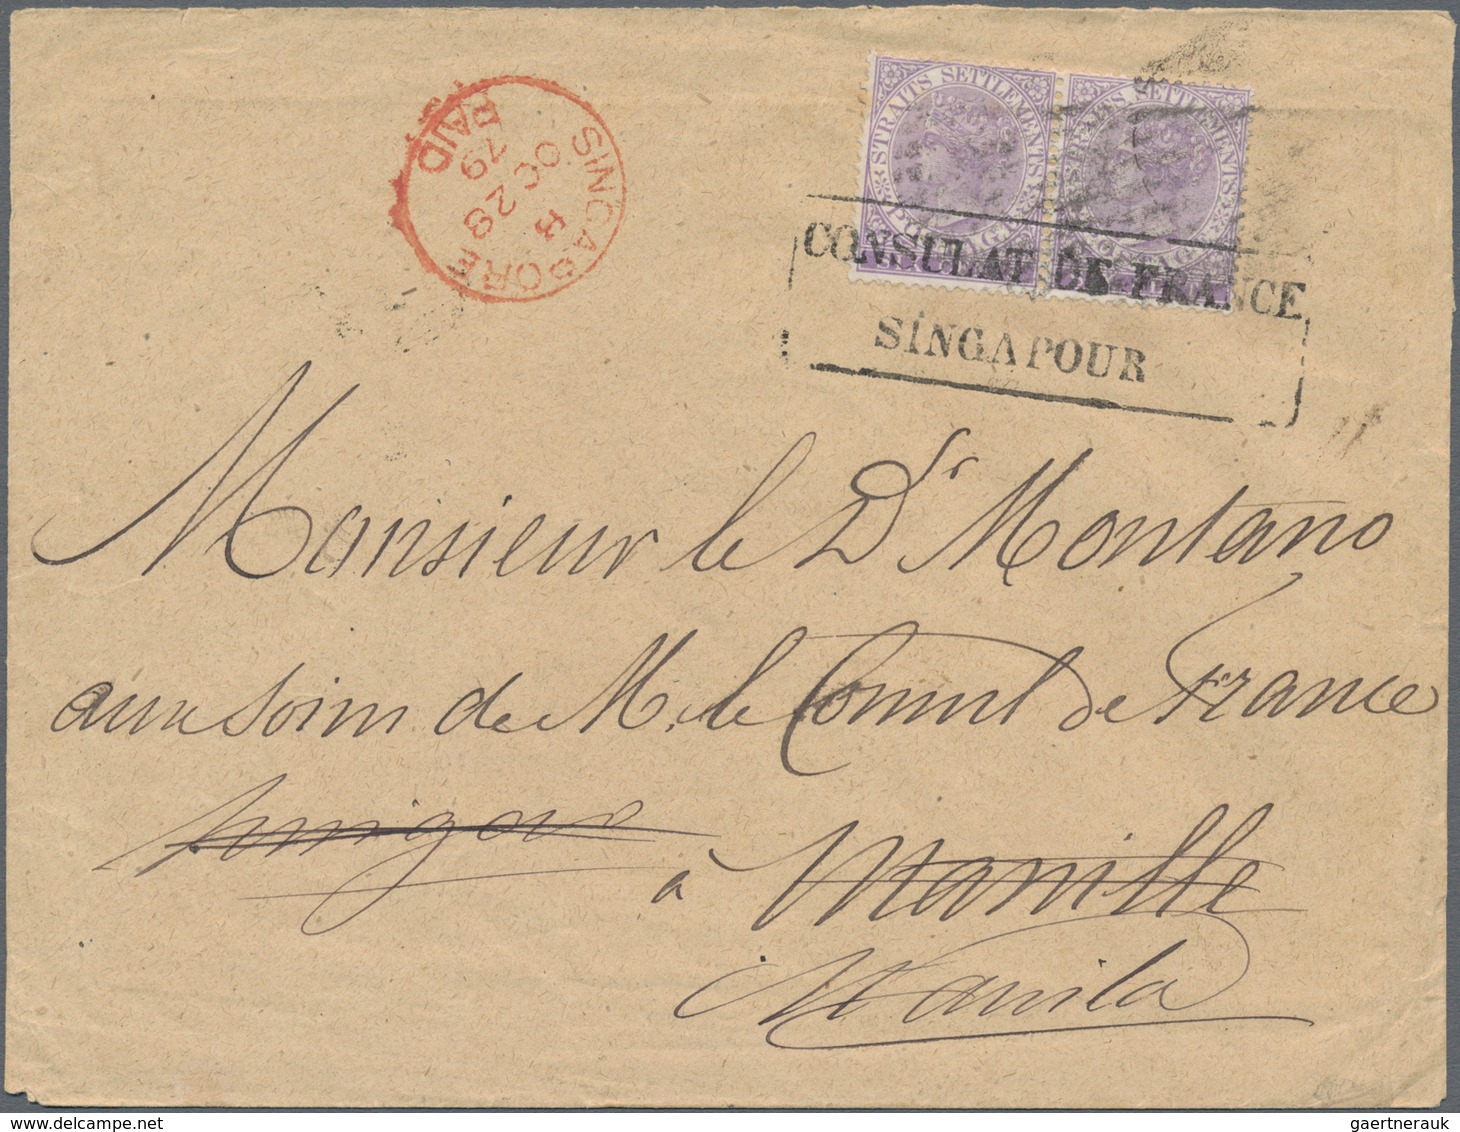 SINGAPORE
B
OC 28
79
PAID
STRAITS SETTLEMENTS
STRAITS SETTLEMENTS
CONSULAT DE FRANCE
SINGAPOUR
Monsieur le Dr Montano
aux soins de M. le Consul de France
à Manille
Manila
gaertnerauk